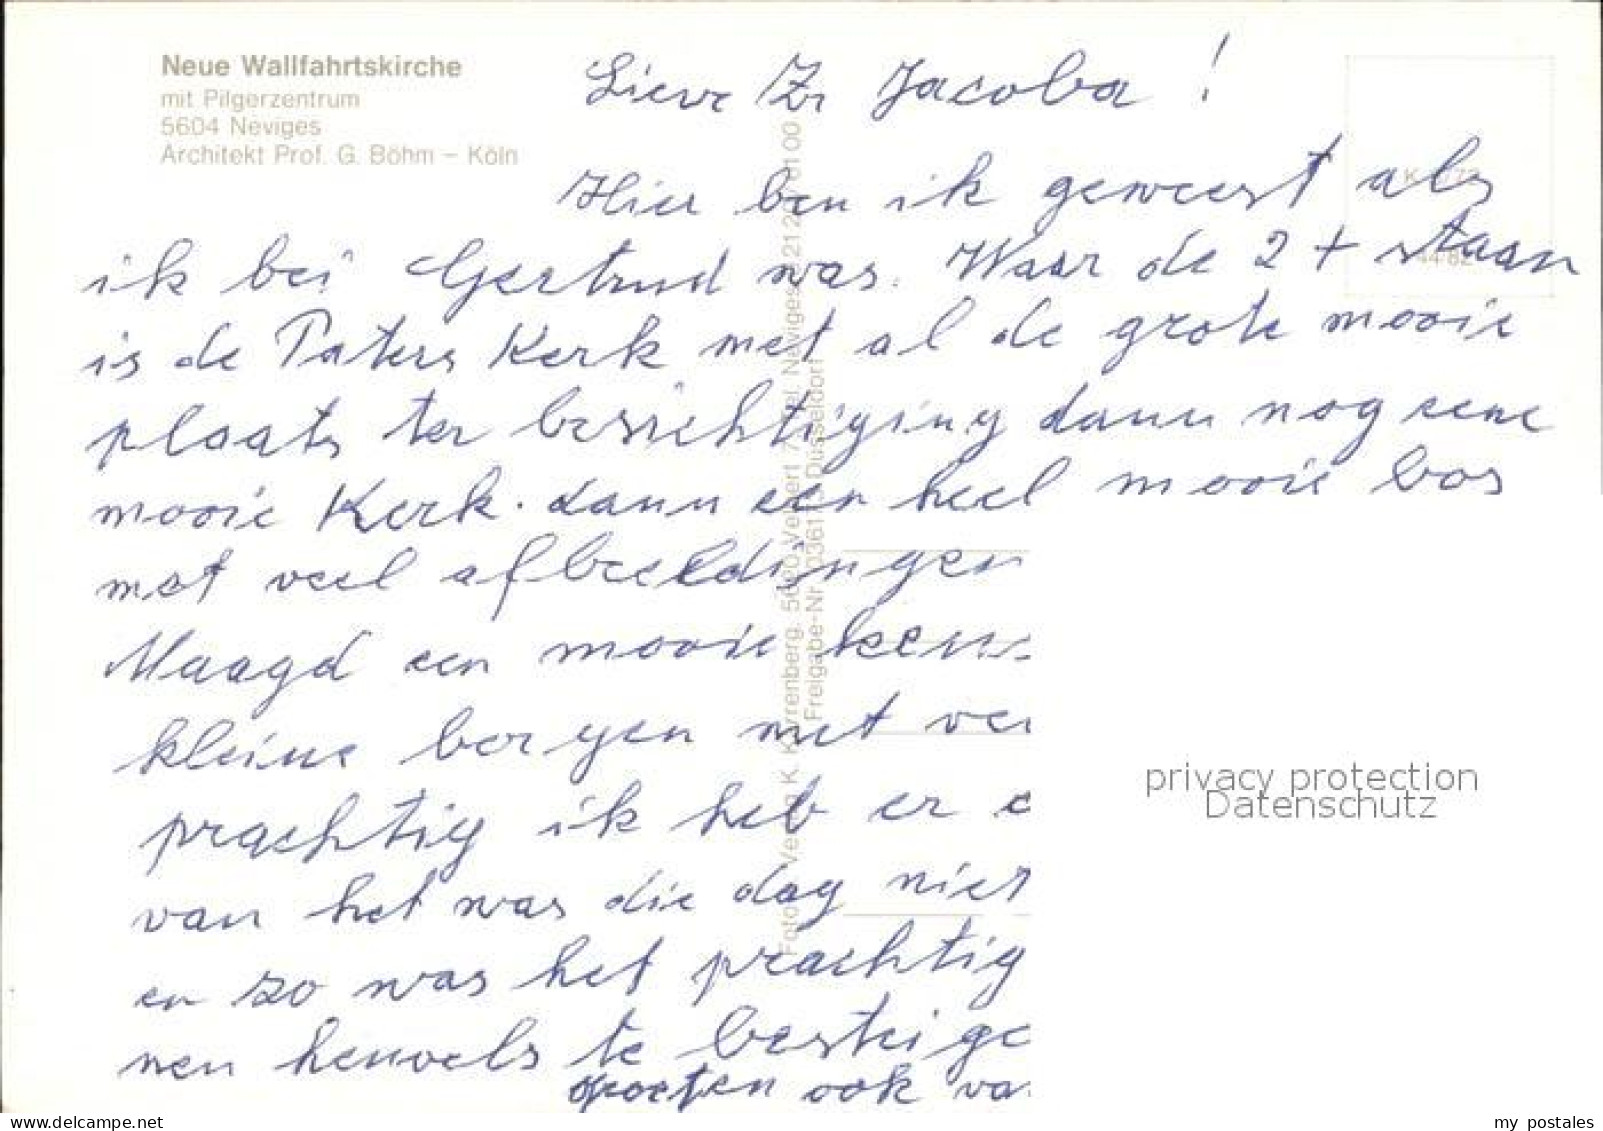 Neue Wallfahrtskirche
mit Pilgerzentrum
5604 Neviges
Architekt Prof. G. Böhm – Köln
Lieve Zr Jacoba !
Hier ben ik geweest als
ik bei Gertrud was. Waar de 2 + staan
is de Paters Kerk met al de grote mooie
plaats ter besichtiging dann nog eene
mooie Kerk. dann een heel mooie bos
met veel afbeeldingen
Maagd een mooie
kleine bergen met
prachtig ik heb er
van het was die dag niet
en zo was het prachtig
nen heuvels te bestijge
groeten ook va
Foto Verlag K. Kyrrenberg, 5620 Velbert Tel. Neviges
Freigabe-Nr. Düsseldorf
privacy protection
Datenschutz
my postales
www.delcampe.net